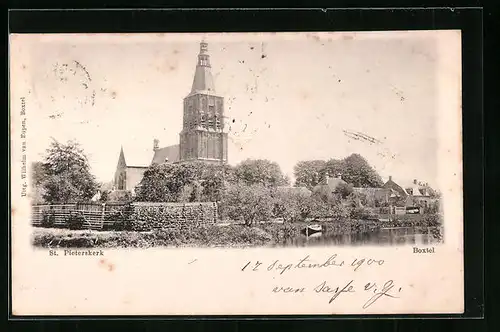 Uitg. Wilhelm van Eupen, Boxtel
St. Pieterskerk
Boxtel
17 September 1900
van